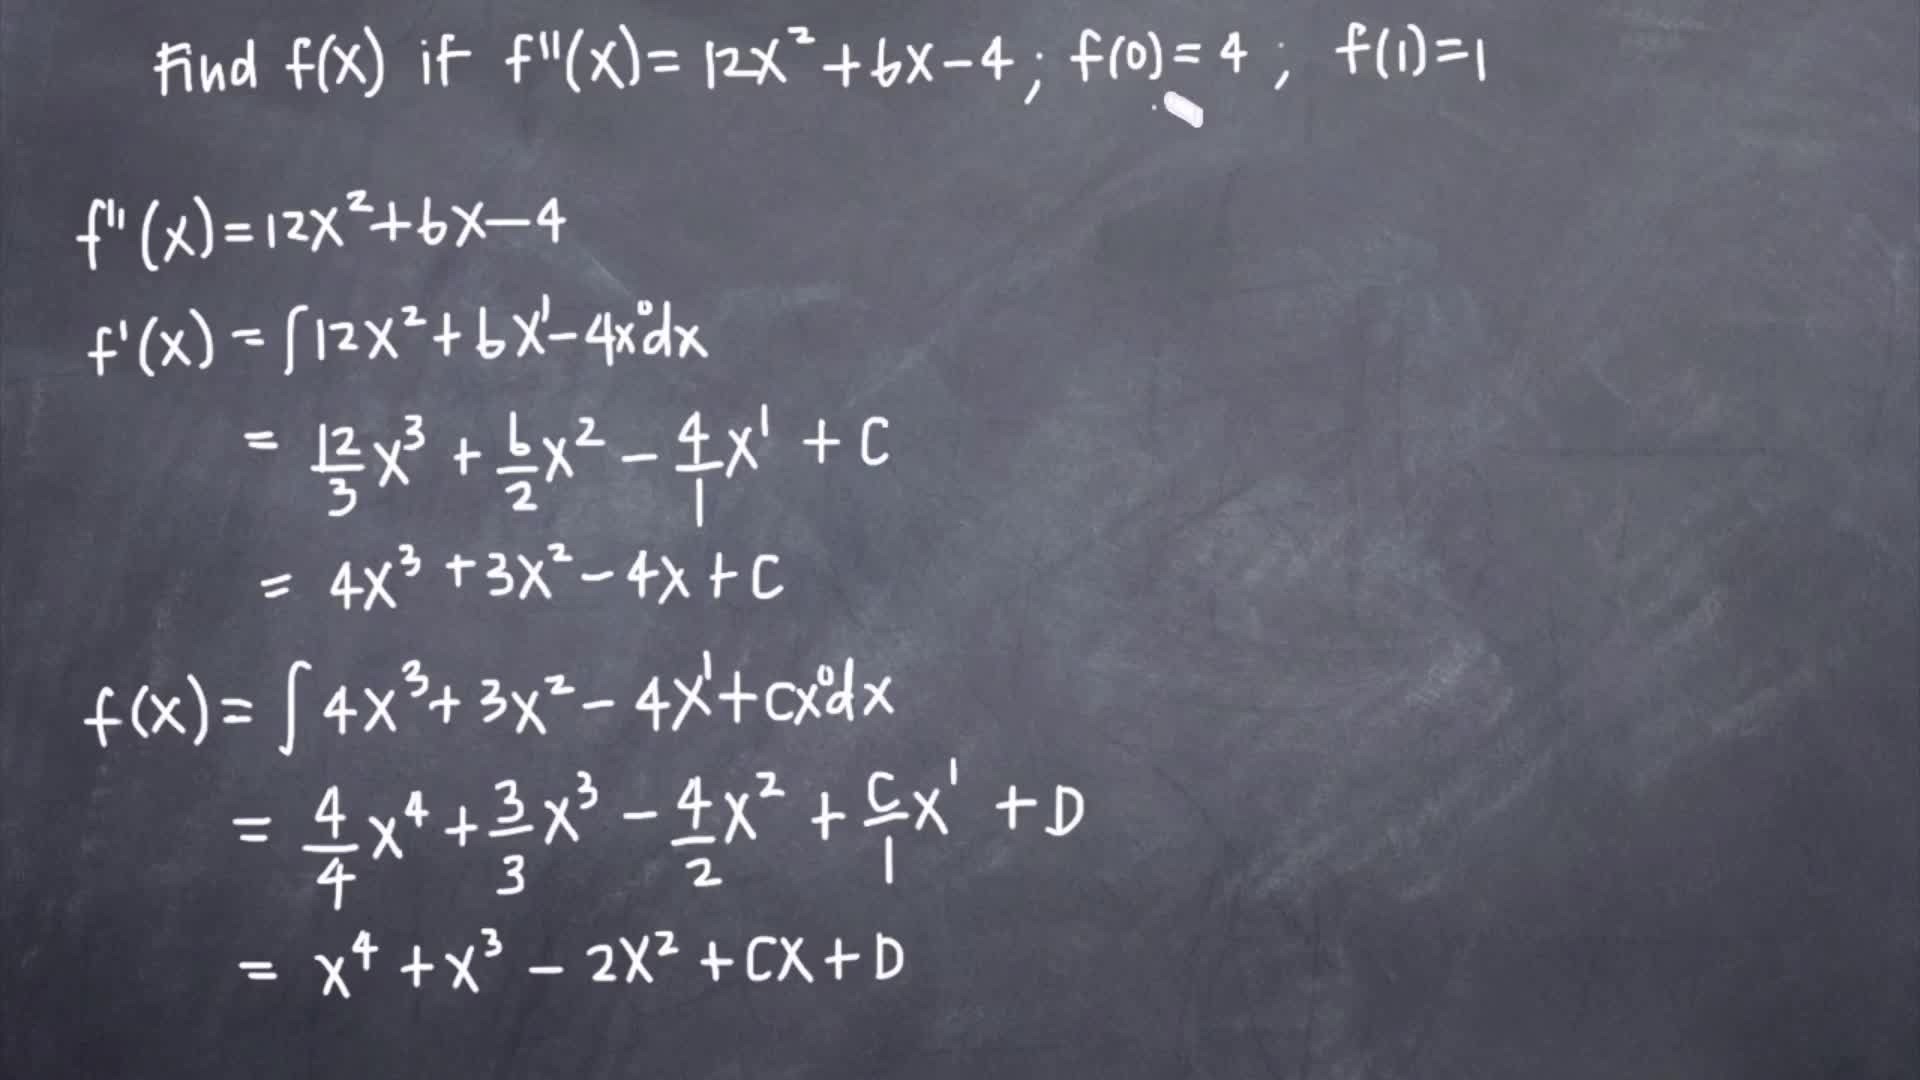 Find f(x) if f''(x)= 12x²+6x-4; f(0)=4; f(1)=1
f''(x)=12x²+6x-4
f'(x) = ∫12x²+6x¹-4x⁰dx
= 12/3 x³ + 6/2 x² - 4/1 x¹ + C
= 4x³+3x²-4x+C
f(x)= ∫4x³+3x²-4x¹+Cx⁰dx
= 4/4 x⁴+3/3 x³-4/2 x²+C/1 x¹+D
= x⁴+x³-2x²+Cx+D